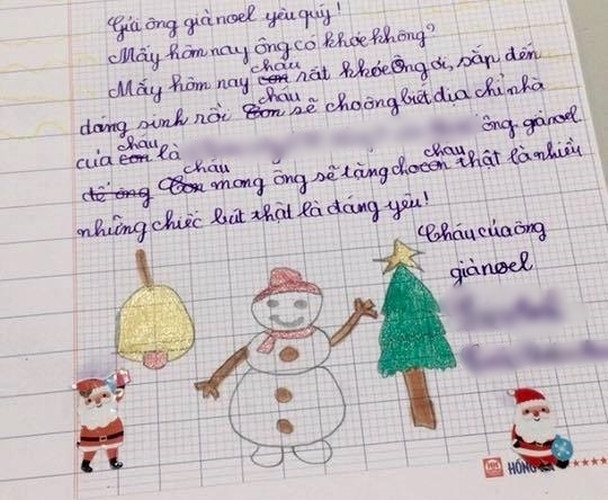 Gửi ông già noel yêu quý!
Mấy hôm nay ông có khỏe không?
Mấy hôm nay cháu rất khỏe ông ơi, sắp đến
dáng sinh rồi cháu sẽ cho ông biết địa chỉ nhà
của cháu là ông già noel
cháu mong ông sẽ tặng cho cháu thật là nhiều
những chiếc bút thật là đáng yêu!
Cháu của ông
già noel
HỒNG